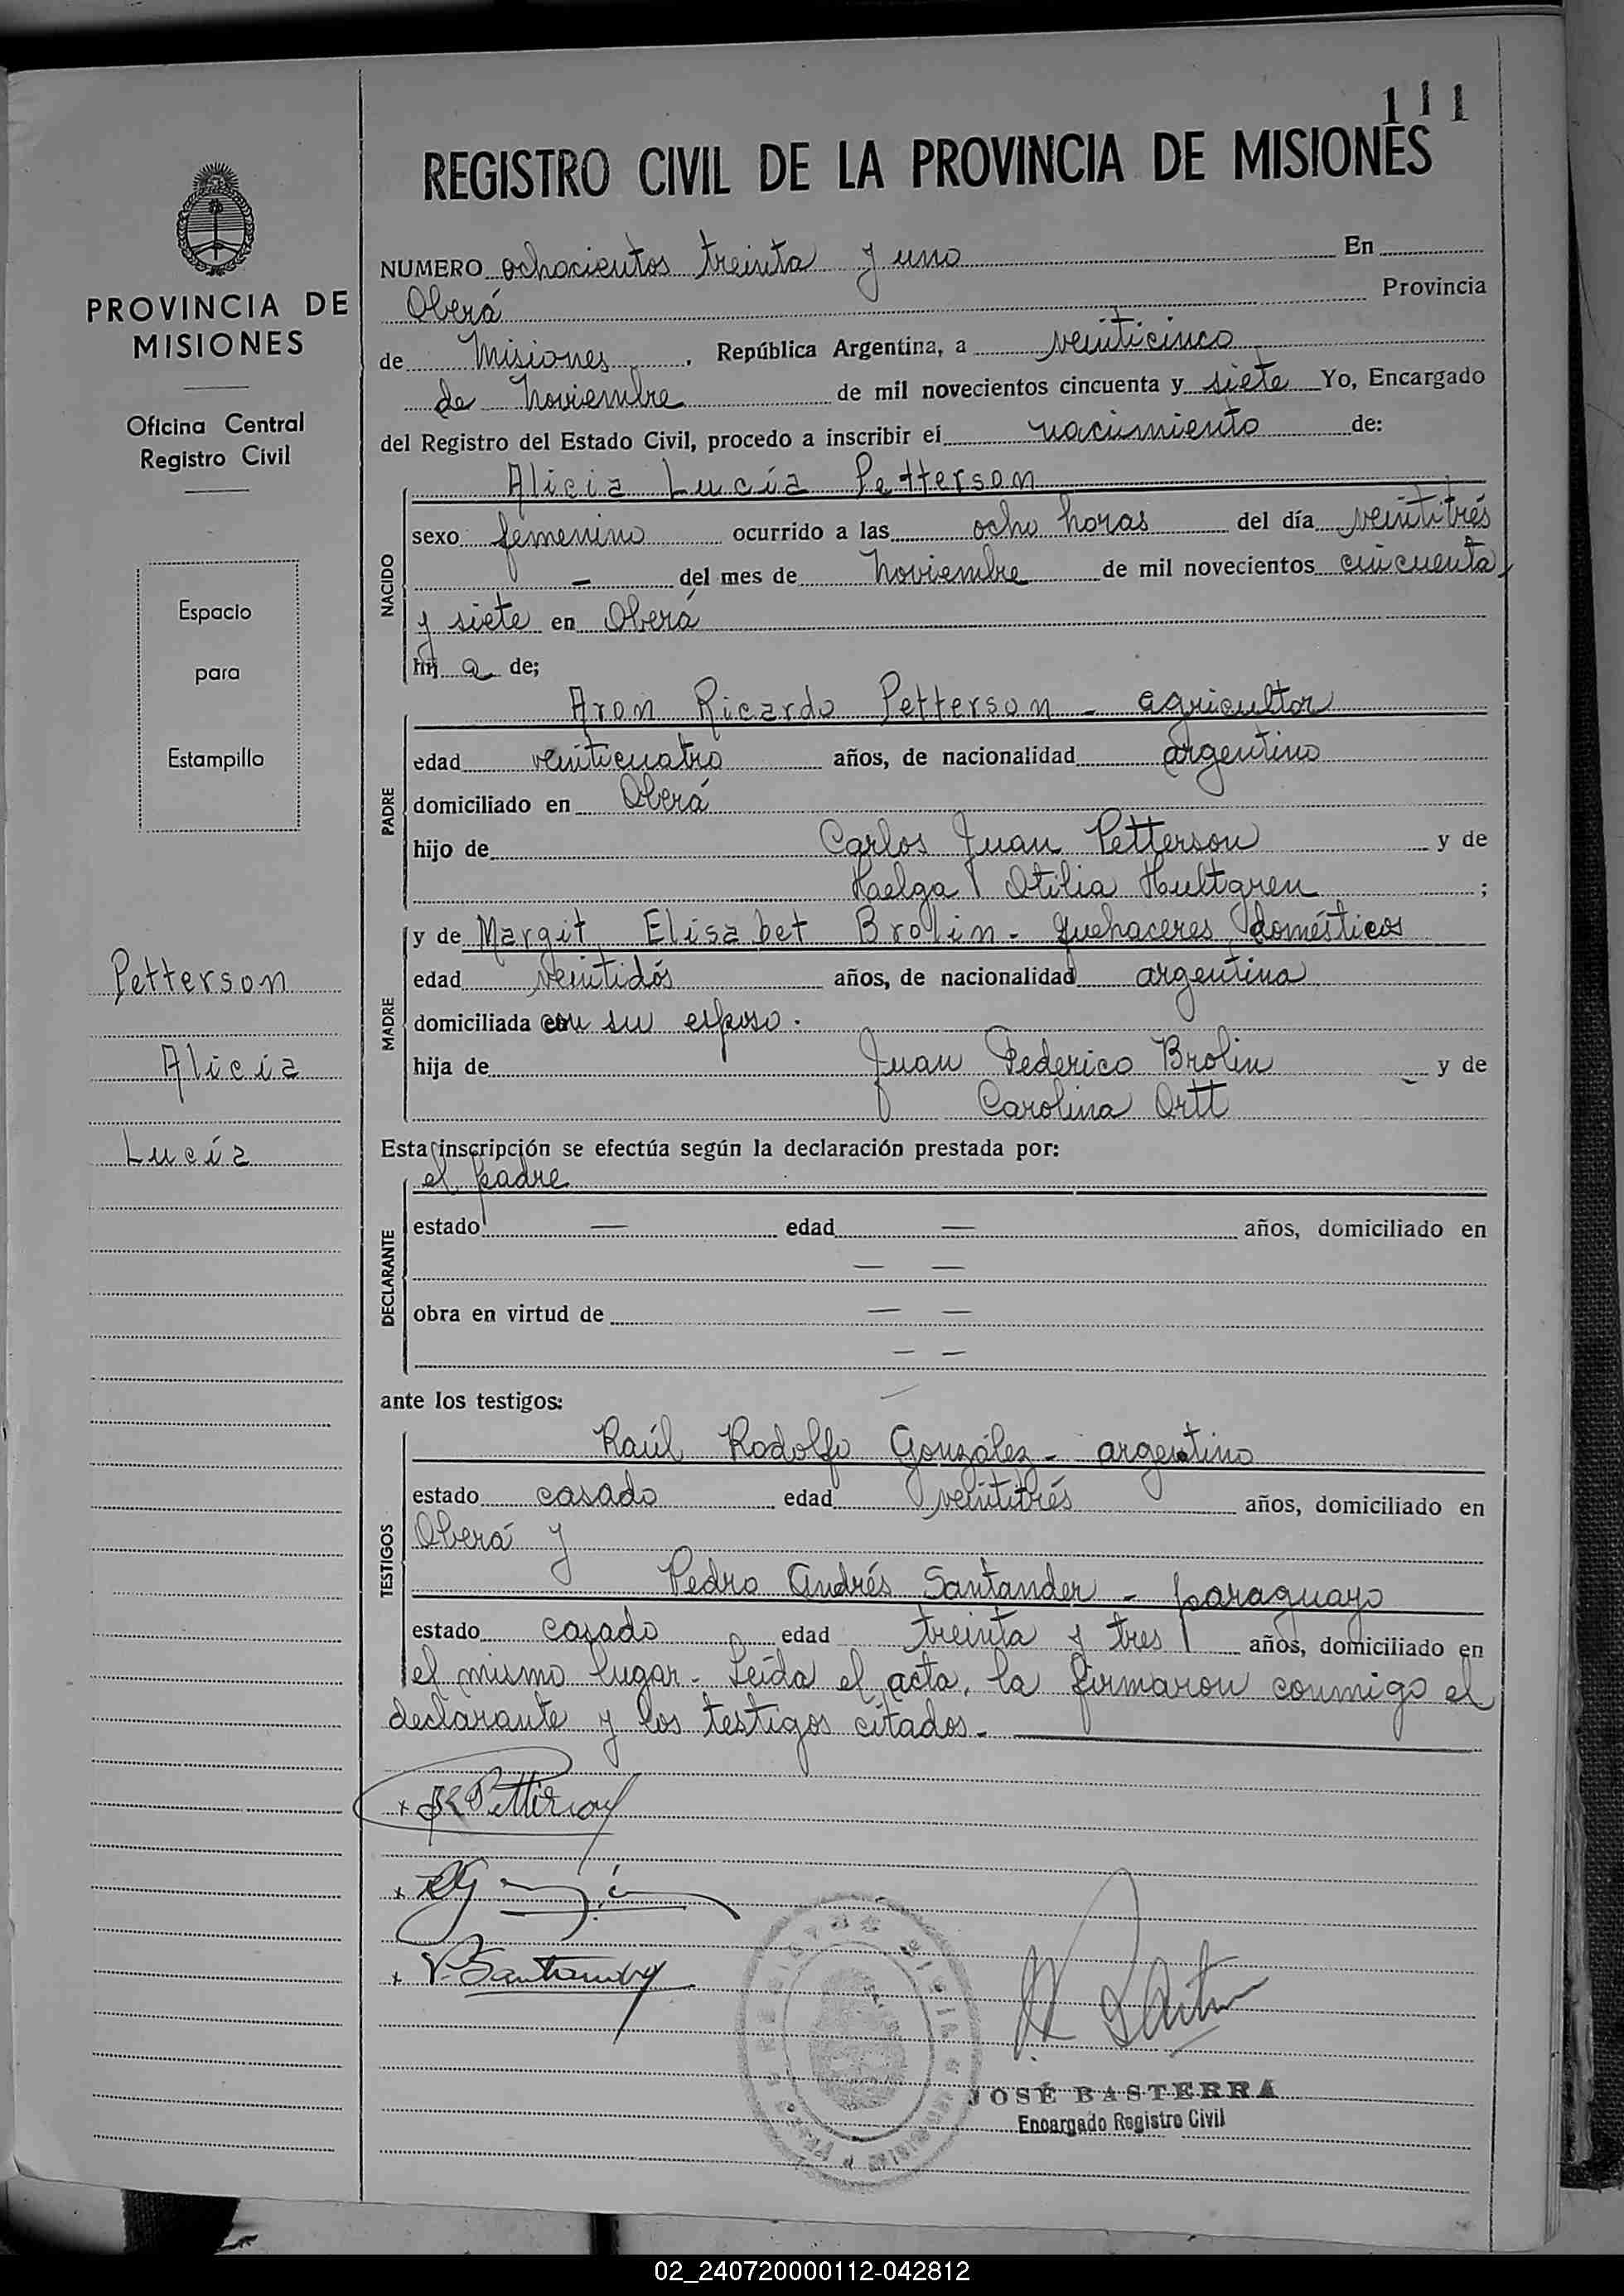 111
REGISTRO CIVIL DE LA PROVINCIA DE MISIONES
PROVINCIA DE
MISIONES
Oficina Central
Registro Civil
Espacio
para
Estampilla
Petterson
Alicia
Lucía
NUMERO ochocientos treinta y uno En
Oberá Provincia
de Misiones, República Argentina, a veinticinco
de Noviembre de mil novecientos cincuenta y siete Yo, Encargado
del Registro del Estado Civil, procedo a inscribir el nacimiento de:
Alicia Lucía Petterson
NACIDO
sexo femenino ocurrido a las ocho horas del día veintitrés
— del mes de Noviembre de mil novecientos cincuenta
y siete en Oberá
hij a de;
Aron Ricardo Petterson - agricultor
PADRE
edad veinticuatro años, de nacionalidad argentino
domiciliado en Oberá
hijo de Carlos Juan Petterson y de
Haelga Otilia Hultgren ;
y de Margit Elisabet Brolin - quehaceres domésticos
MADRE
edad veintidós años, de nacionalidad argentina
domiciliada con su esposo.
hija de Juan Federico Brolin y de
Carolina Ortt
Esta inscripción se efectúa según la declaración prestada por:
el padre
DECLARANTE
estado — edad — años, domiciliado en
— —
obra en virtud de — —
— —
ante los testigos:
Raúl Rodolfo González - argentino
TESTIGOS
estado casado edad veintitrés años, domiciliado en
Oberá y
Pedro Andrés Santander - paraguayo
estado casado edad treinta y tres años, domiciliado en
el mismo lugar - Leída el acta, la firmaron conmigo el
declarante y los testigos citados.
x Petterson
x
x P. Santander
JOSÉ BASTERRA
Encargado Registro Civil
02_240720000112-042812